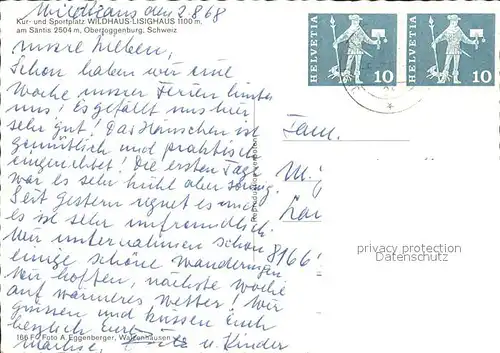 Wildhaus den 8.8.68
Kur- und Sportplatz WILDHAUS-LISIGHAUS 1100 m,
am Säntis 2504 m, Obertoggenburg, Schweiz
unsere Lieben,
Schon haben wir eine
Woche unserer Ferien hinter
uns! Es gefällt uns hier
sehr gut! Das Häuschen ist
gemütlich und praktisch
eingerichtet! Die ersten Tage
war es sehr kühl aber sonnig.
Seit gestern regnet es und
es ist sehr unfreundlich.
Wir unternahmen schon
einige schöne Wanderungen
Wir hoffen, nächste Woche
auf wärmeres Wetter! Wir
grüssen und küssen Euch
herzlich Eure
u. Kinder
166 FC Foto A. Eggenberger, Walzenhausen
Reproduktion verboten
HELVETIA 10
HELVETIA 10
Fam.
M.
8166
privacy protection
Datenschutz